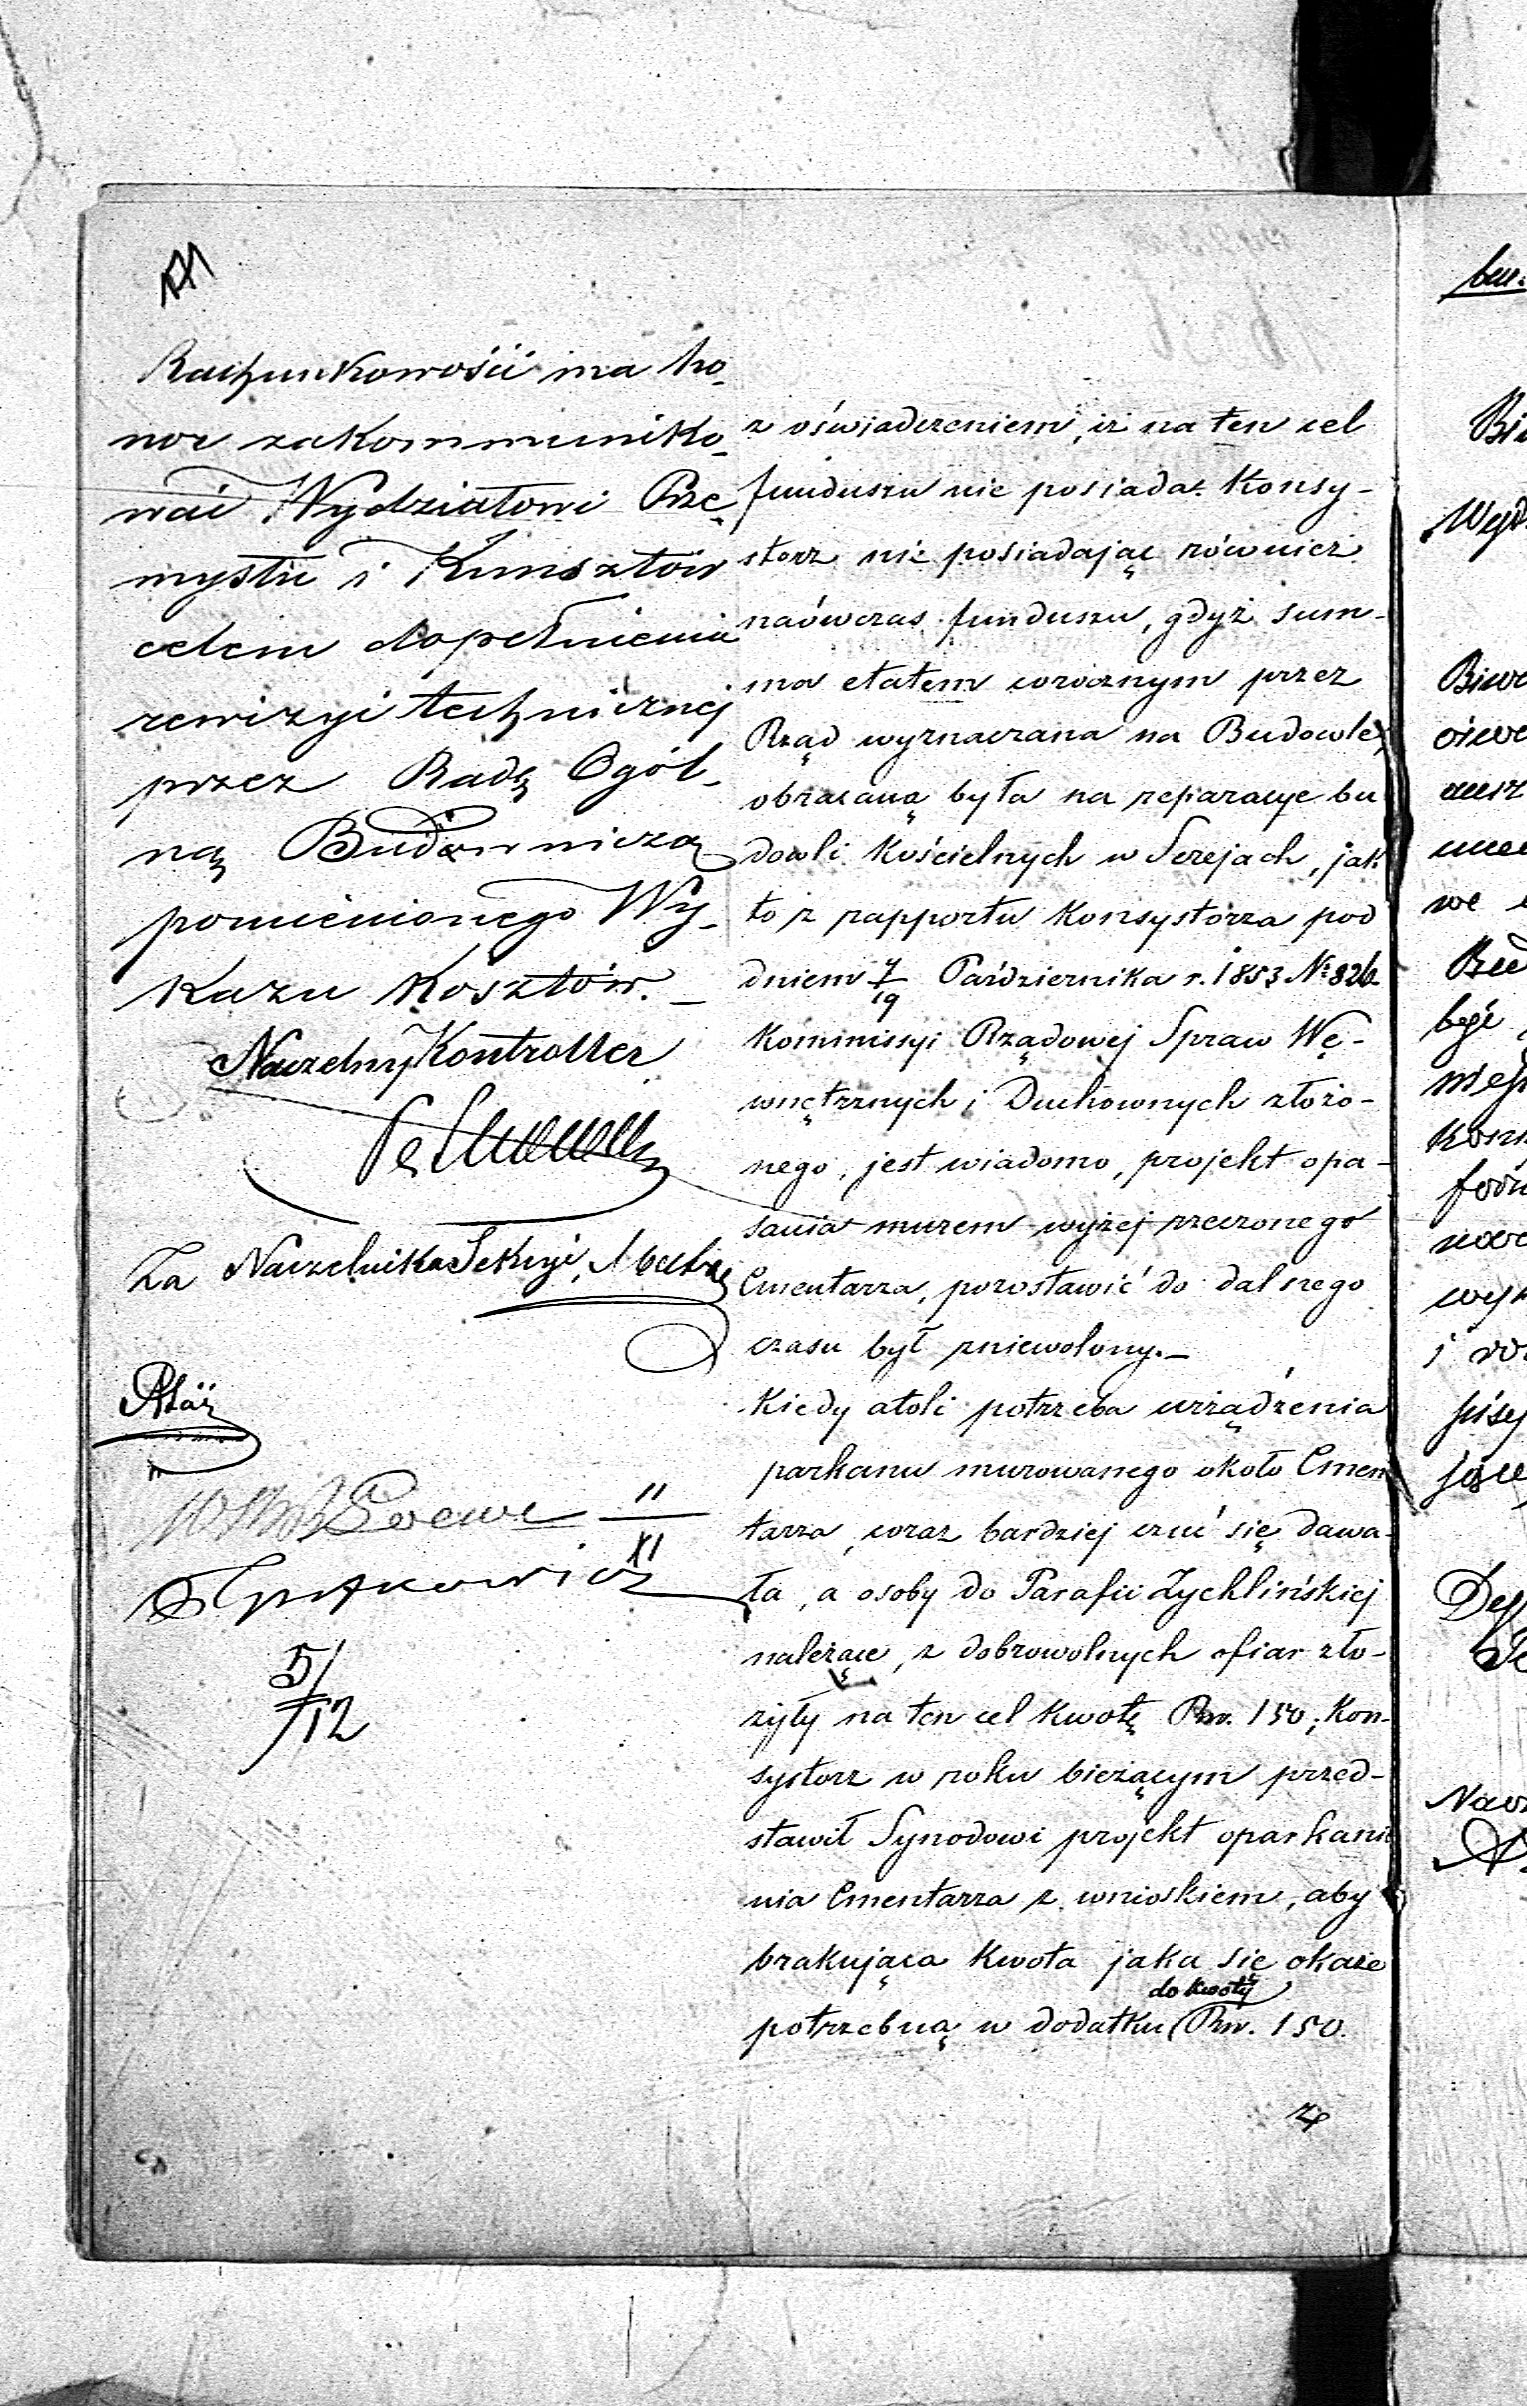 Rachunkowość ma ho_
nor zakommuniko_
wać Wydziałowi Prze_
mysłu i Kunsztów
celem dopełnienia
rewizyi technicznej
przez Radę Ogól_
ną Budowniczą
pomienionego Wy_
kazu Kosztów._
Naczelny Kontroller
Za Naczelnika Sekcyi,
11
XI
5/12
z oświadczeniem, iż na ten cel
funduszu nie posiada. Konsy-
storz nie posiadając również
naówczas funduszu, gdyż sum-
ma etatem corocznym przez
Rząd wyznaczana na Budowle,
obracaną była na reparacye bu
dowli Kościelnych w Serejach, jak
to z rapportu Konsystorza pod
dniem 7/19 Października r. 1853 № 826
Kommissyi Rządowej Spraw We-
wnętrznych i Duchownych złożo-
nego, jest wiadomo, projekt opa-
sania murem wyżej rzeczonego
Cmentarza, pozostawić do dalszego
czasu był zniewolony._
Kiedy atoli potrzeba urządzenia
parkanu murowanego około Cmen
tarza, coraz bardziej czuć się dawa-
ła, a osoby do Parafii Żychlińskiej
należące, z dobrowolnych ofiar zło-
żyły na ten cel kwotę Rsr. 150; Kon-
systorz w roku bieżącym przed-
stawił Synodowi projekt oparkanie
nia Cmentarza z wnioskiem, aby
brakująca kwota jaka się okaże
do kwoty
potrzebną w dodatku Rsr. 150.
ze